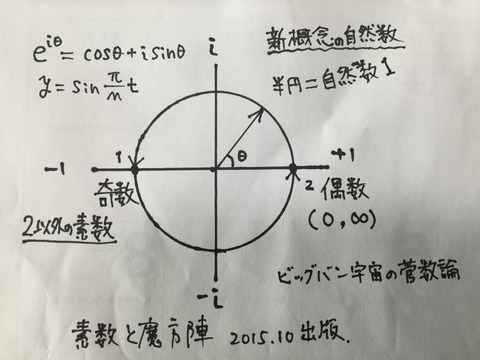 e^{iθ} = cosθ + i sinθ
y = sin π/n t
新概念の自然数
半円=自然数1
i
-1
1
θ
+1
奇数
2
偶数
(0, ∞)
2以外の素数
-i
ビッグバン宇宙の菅数論
素数と魔方陣 2015.10出版.